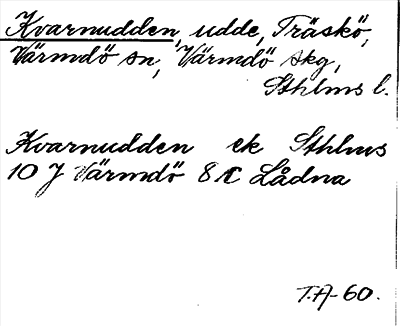 Kvarnudden, udde, Träskö,
Värmdö sn, Värmdö skg,
Sthlms l.
Kvarnudden ek Sthlms
10 J Värmdö 8 C Lådna
T.A-60.